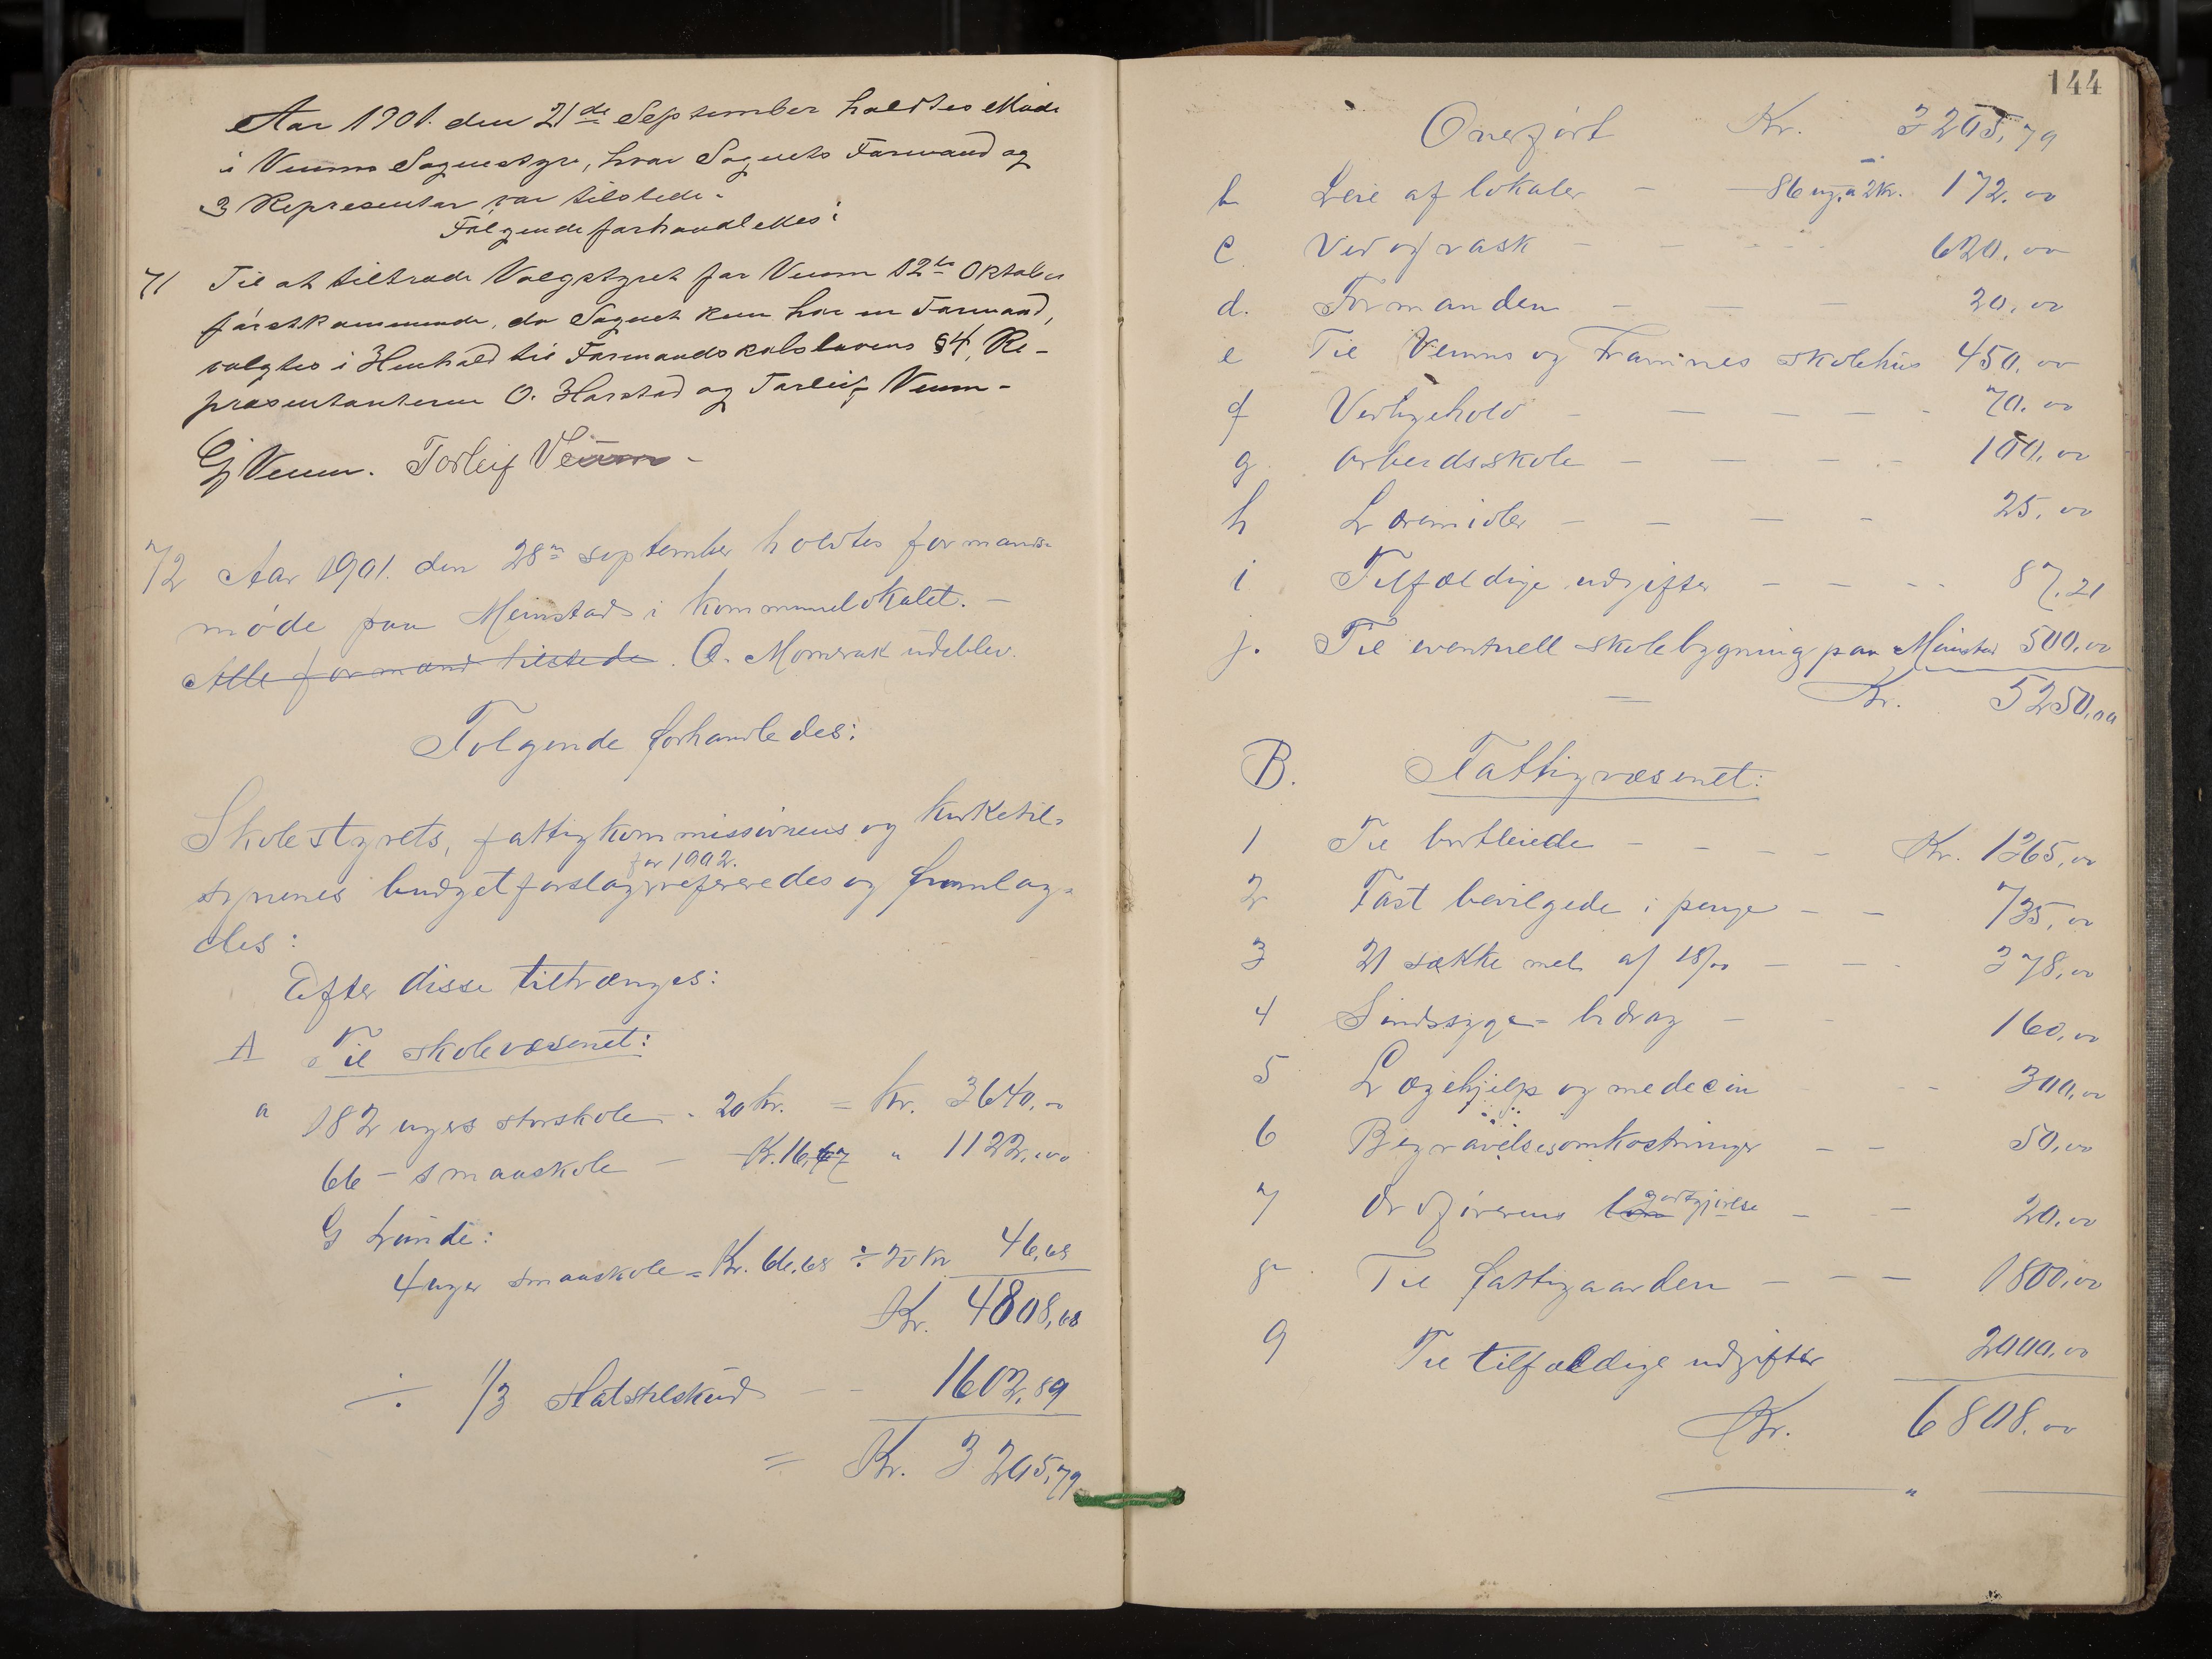 Aar 1901. den 21de September holdtes Møde
i Veums Sognestyre, hvor Sognets Formand og
3 Representar var tilstede.
Følgende forhandledes:
71 Til at tiltræde Valgstyret for Veum 12te Oktober
førstkommende, da Sognet kun har en Formand,
valgtes i Henhold til Formandskabslovens §4, Re-
præsentanterne O. Harstad og Torleif Veum -
GJ Veum. Torleif Veum -
72 Aar 1901. den 28de september holdtes formands-
møde paa Meinstad i kommunelokalet. -
Alle formænd tilstede. O. Momrak udeblev.
Følgende forhandledes:
Skolestyrets, fattigkommissionens og kirketil-
for 1902.
synenes budgetforslag refereredes og fremlag-
des:
Efter disse tiltrænges:
A Til skolevæsenet:
a 182 ugers storskole - 20 Kr. = Kr. 3640,00
66 - smaaskole - Kr. 16,67 " 1122,00
G Lunde:
4 uger smaaskole = Kr. 66,68 ÷ 20 Kr 46,68
Kr. 4808,68
÷ 1/3 Statstilskud - - 1602,89
= Kr. 3205,79
144
Overført Kr. 3205,79
b Leie af lokaler - 86 ug. a 2 kr. 172,00
c Ved og vask - - - 620,00
d. Formanden - - - 20,00
e Til Veums og Framnes skolehus 450,00
f Vedligehold - - - - - 70,00
g Arbeidsskole - - - - 100,00
h Læremidler - - - - 25,00
i Tilfældige udgifter - - - - 87,21
j. Til eventuell skolebygning paa Meinstad 500,00
- Kr. 5250,00
B. Fattigvæsenet:
1 Til bortleiede - - - - Kr. 1365,00
2 Fast bevilgede i penge - - 735,00
3 21 sække mel af 18/00 - - 378,00
4 Sindssyge- bidrag - - 160,00
5 Lægehjelp og medecin - 300,00
6 Begravelsesomkostninger - - 50,00
7 Ordførerens løn godtgjørelse - - 20,00
8 Til fattiggaarden - - - 1800,00
9 Til tilfældige udgifter 2000,00
Kr. 6808,00
"